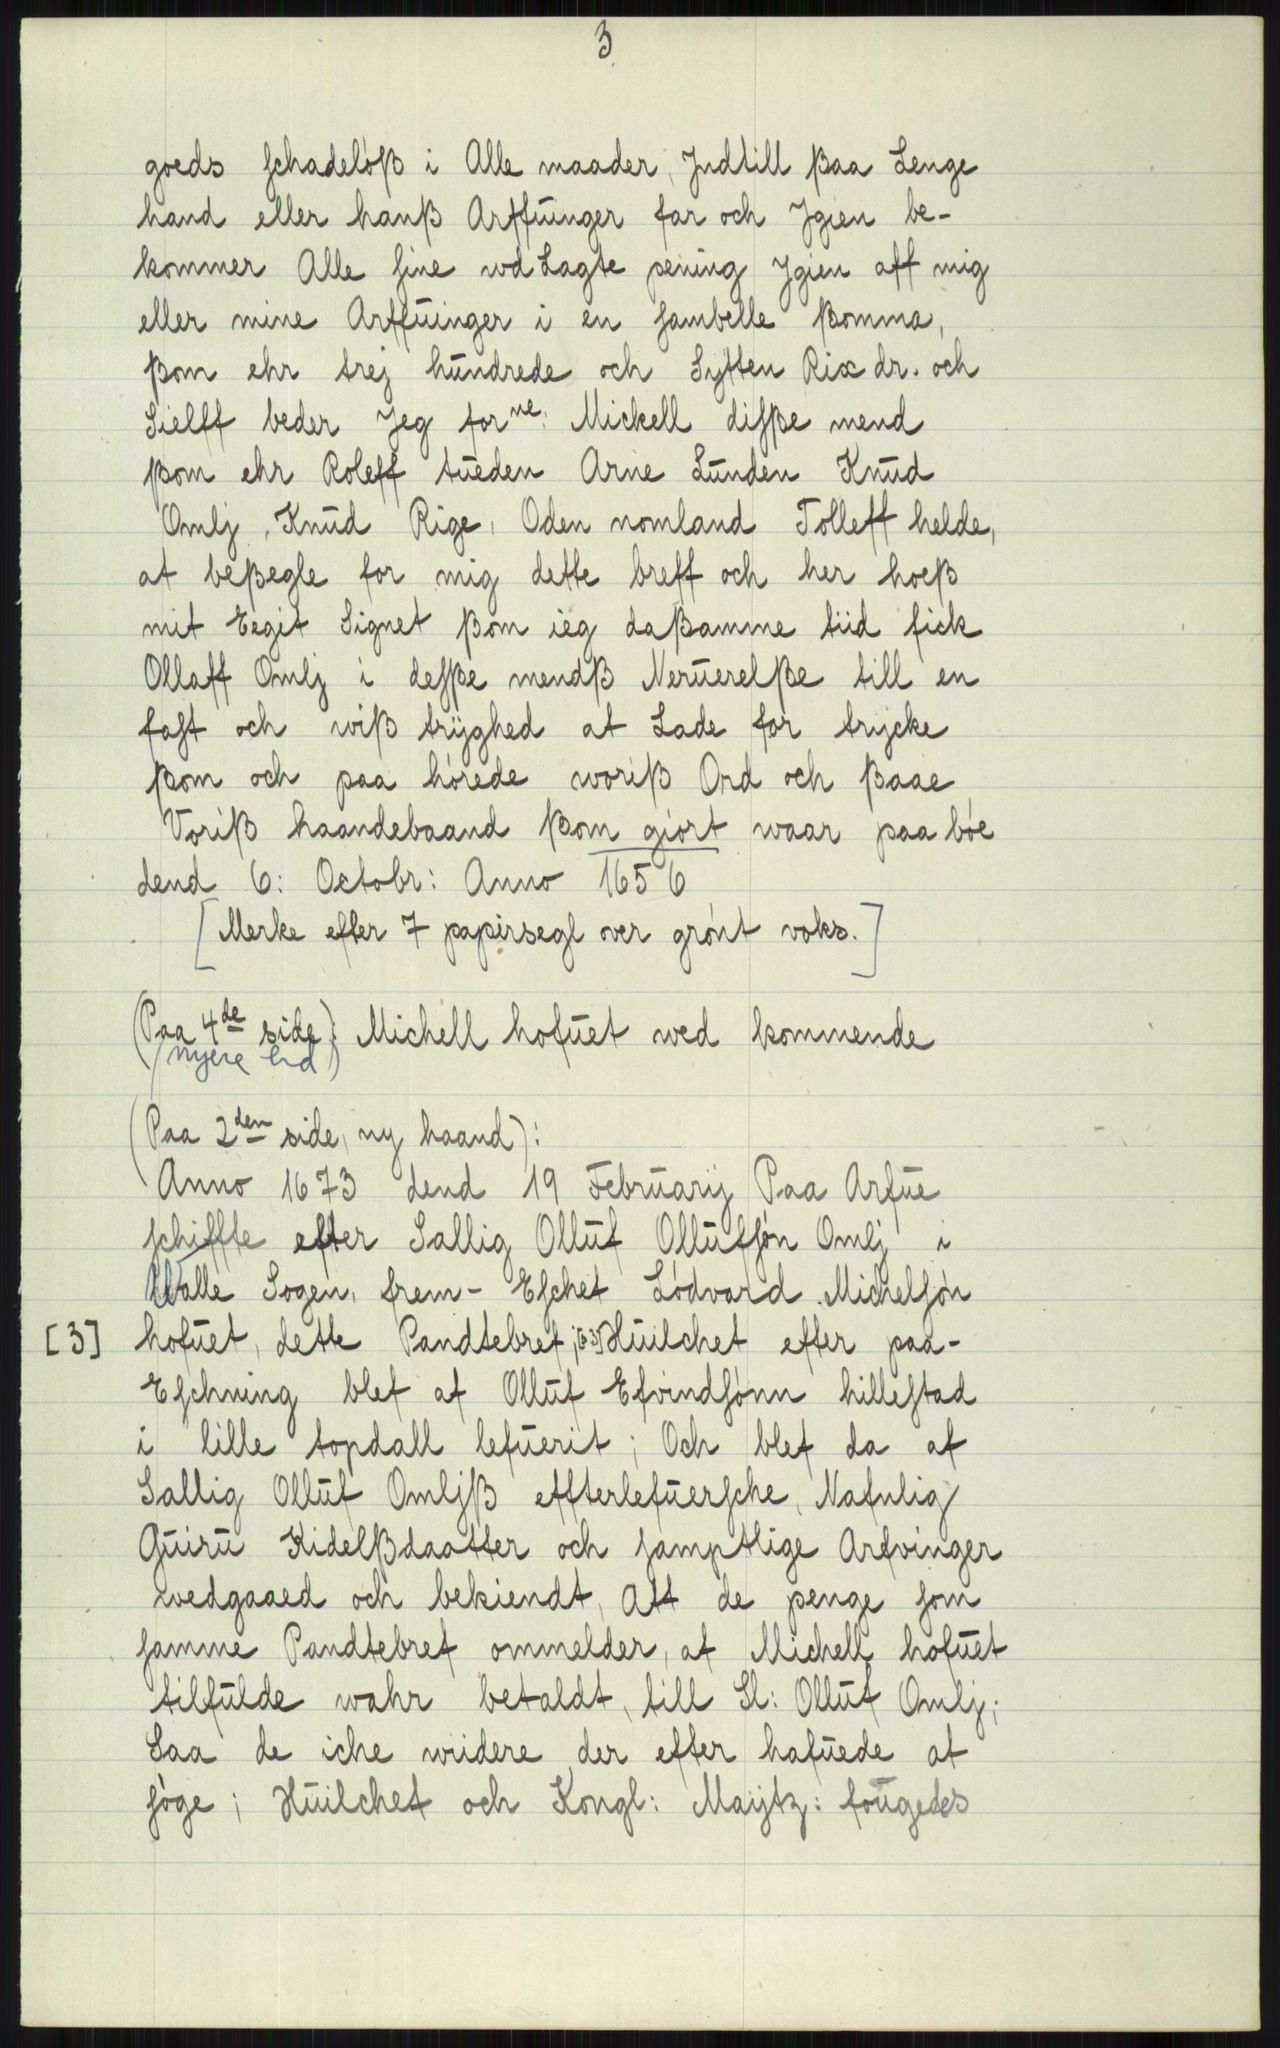 3
goeds schadelóß i Alle maader, Jndtill ßaa Lenge
hand eller hanß Arffuinger far och Jgien be-
kommer Alle sine wd Lagte pening Jgien aff mig
eller mine Arffuinger i en sambelle ßomma,
ßom ehr trej hundrede och Sytten Rix dr. och
Sielff beder Jeg forne: Mickell disße mend
ßom ehr Roleff tueden Arne Lunden Knud
Omlj, Knud Rige, Oden nomland Tolleff helde,
at beßegle for mig dette breff och her hoeß
mit Eegit Signet ßom ieg daßamme tiid fick
Ollaff Omlj i desße mendß Neruerelße till en
fast och wiß trÿghed at Lade for trycke
ßom och paa hórede woriß Ord och ßaae
Voriß haandebaand ßom giort waar paa bóe
dend 6: Octobr: Anno 1656
[Merke efter 7 papirsegl over grónt voks.]
(Paa 4de side): Michell hofuet wed kommende
(nyere hd)
(Paa 2den side, ny haand):
Anno 1673 dend 19 Februarij Paa Arfue
schiffte efter Sallig Olluf Ollufsón Omlj i
Walle Sogen, frem- Eschet Lódvard Michelsón
[3] hofuet, dette Pandtebref, [63] Huilchet efter paa-
Eschning blef af Olluf Efvindsónn hillestad
i lille topdall lefuerit; Och blef da af
Sallig Olluf Omljß effterlefuersche, Nafnlig
Guiru Kidelßdaatter och samptlige Arfvinger
wedgaaed och bekiendt, Att de penge som
samme Pandtebref ommelder, af Michell hofuet
tilfulde wahr betaldt, till Sl: Olluf Omlj;
Saa de iche wiidere der efter hafuede at
sóge; Huilchet och Kongl: Maytz: fougedes